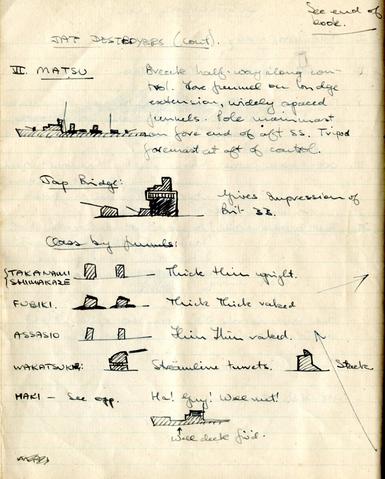 See end of
book.
JAP DESTROYERS (cont).
VII. MATSU
Break half-way along con-
trol. Fore funnel on bridge
extension, widely spaced
funnels. Pole mainmast
on fore end of aft SS. Tripod
foremast at aft of control.
Jap Bridge:
Gives impression of
Brit SS.
Class by funnels:
TAKANAMI
SHIMAKAZE
Thick thin upright.
FUBIKI.
Thick Thick raked
ASSASIO
Thin Thin raked.
WAKATSUKI:
Streamline turrets.
Stack
MAKI — See opp.
Ha! Guy! Well met!
Well deck f'wd.